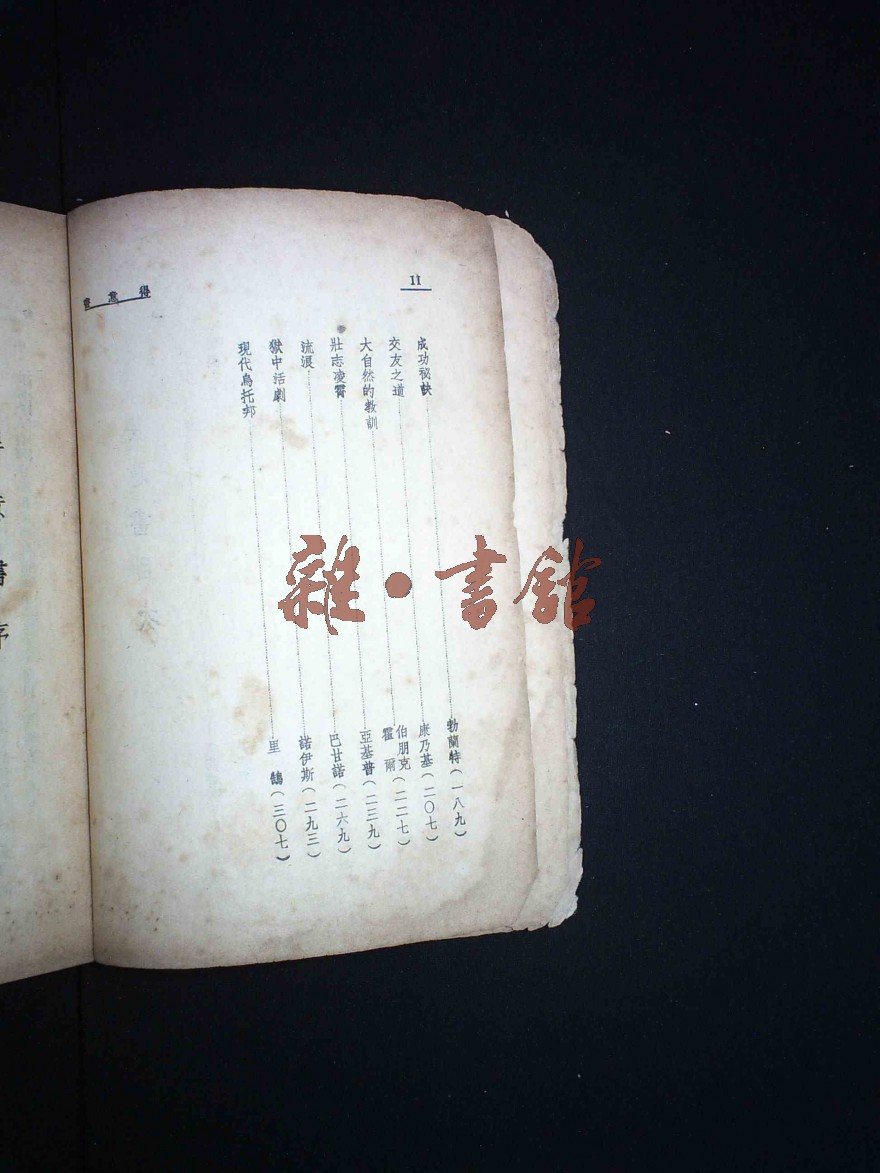 II
得意書
成功祕訣……勃蘭特(一八九)
交友之道……康乃基(二〇七)
大自然的教訓……伯朋克 霍爾(二二七)
壯志凌霄……亞基普(二三九)
流浪……巴甘諾(二六九)
獄中活劇……諾伊斯(二九三)
現代烏托邦……里鵠(三〇七)
書序
雜·書館